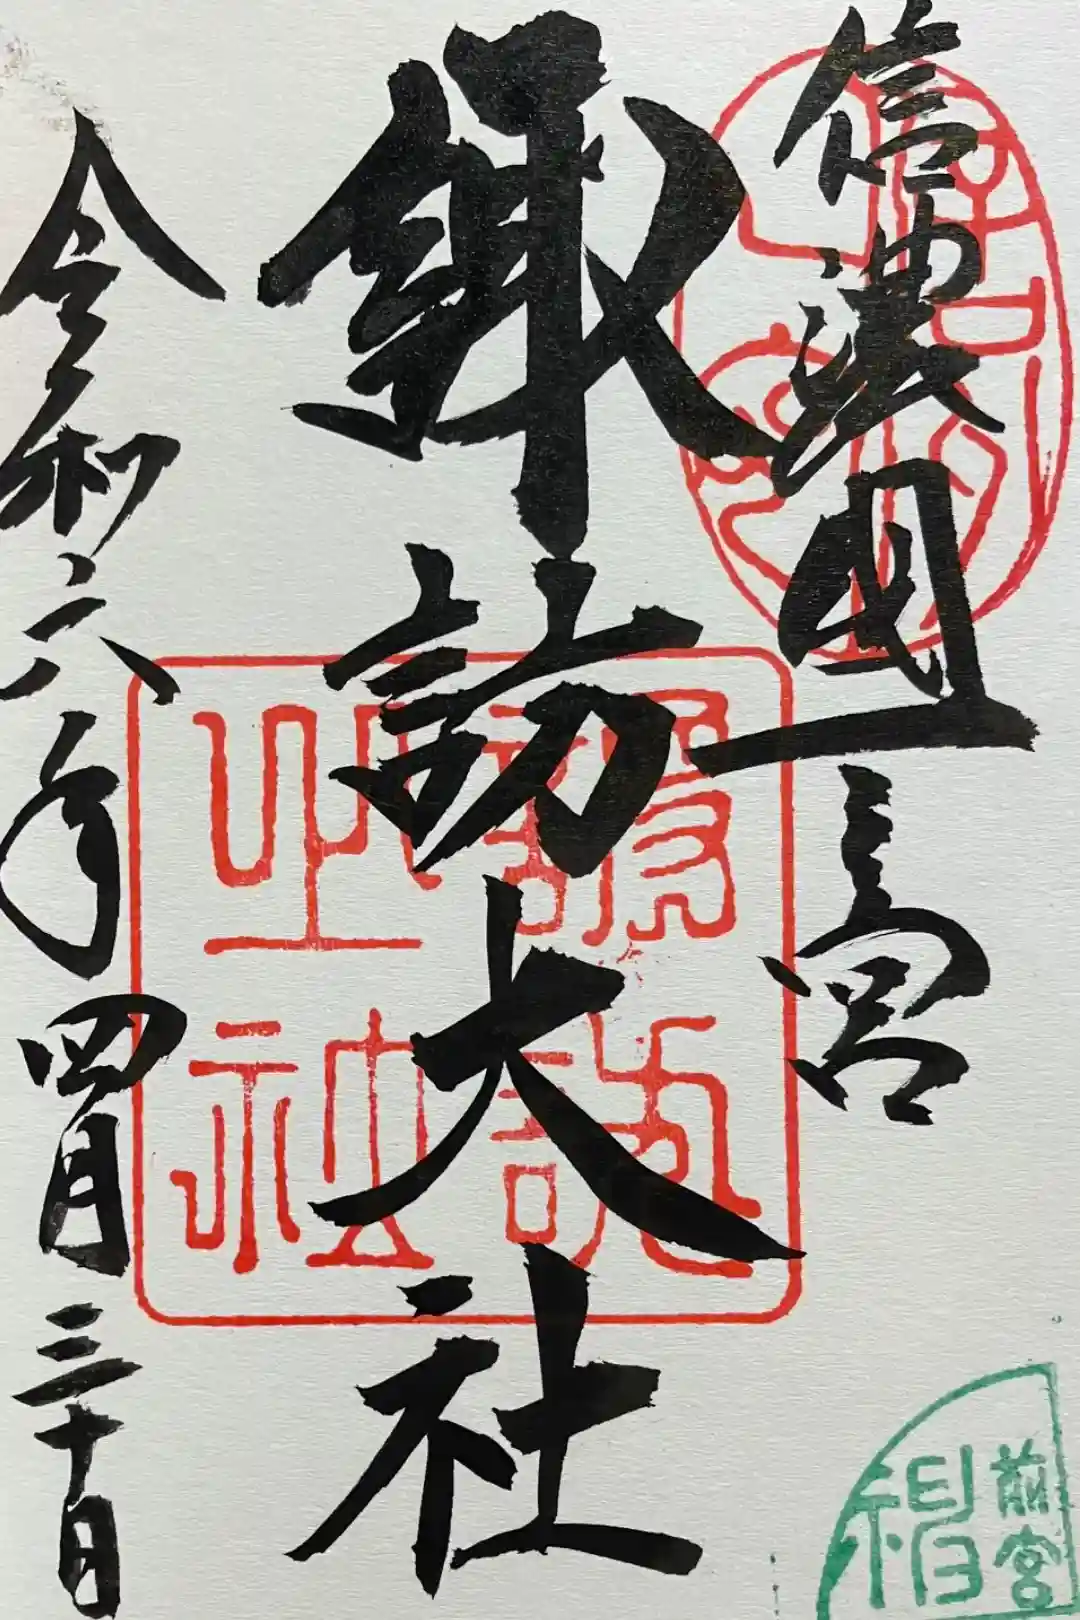 信濃國一之宮
諏訪大社
令和六年四月三十日
前宮